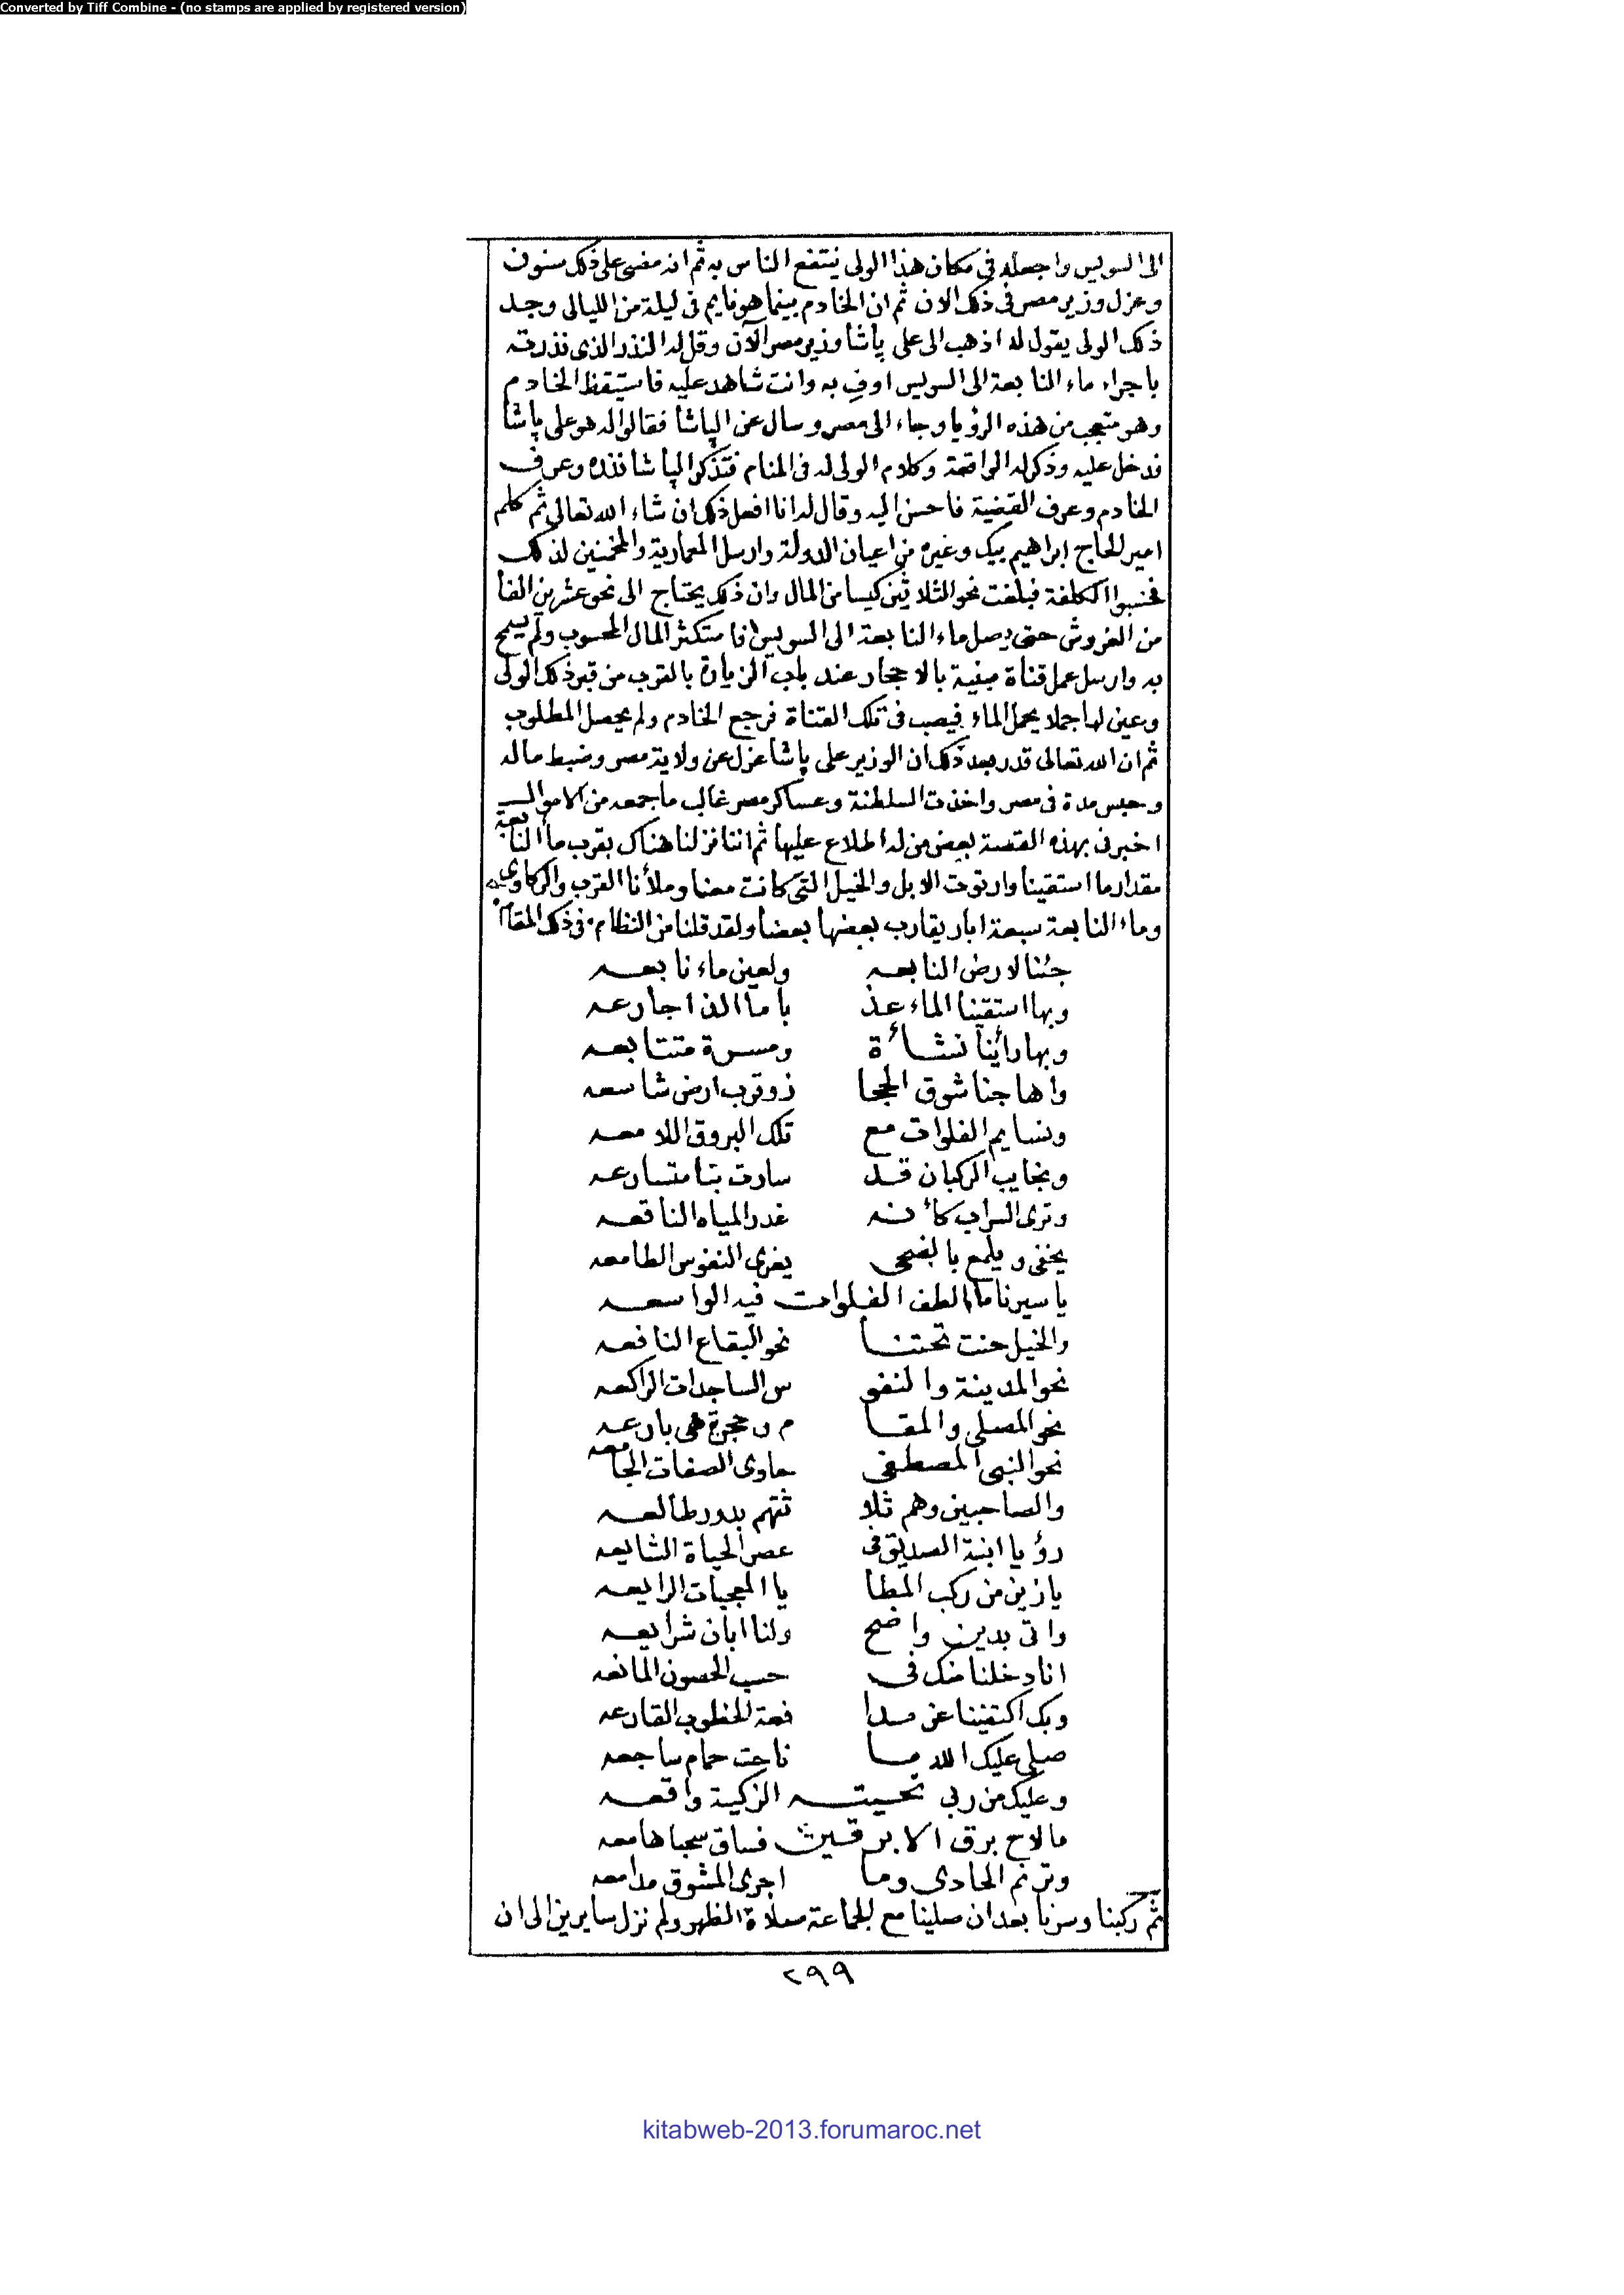 Converted by Tiff Combine - (no stamps are applied by registered version)
الى السويس واجعله في مكان هذا الولى ينتفع الناس به ثم انه مضى على ذلك سنون
وعزل وزير مصر في ذلك الان ثم ان الخادم بينما هو نايم في ليلة من الليالى وجد
ذلك الولى يقول له اذهب الى على پاشا وزير مصر الآن وقل له النذر الذى نذرته
باجراء ماء النابعة الى السويس اوفِ به وانت شاهد عليه فاستيقظ الخادم
وهو متعجب من هذه الرؤيا وجاء الى مصر وسال عن الپاشا فقالوا له هو على پاشا
فدخل عليه وذكر له الواقعة وكلام الولى له في المنام فتذكر الپاشا نذره وعرف
الخادم وعرف القضية فاحسن اليه وقال له انا افعل ذلك ان شاء الله تعالى ثم كلم
امير الحاج ابراهيم بيك وغيره من اعيان الدولة وارسل المعمارية والمخمنين لذلك
فحسبوا الكلفة فبلغت نحو الثلاثين كيسا من المال وان ذلك يحتاج الى نحو عشرين الفا
من الغروش حتى يصل ماء النابعة الى السويس فاستكثر المال المحسوب ولم يسمح
به وارسل عمل قناة مبنية بالاحجار عند باب الزيارة بالقرب من قبر ذلك الولى
وعين لها جملا يحمل الماء فيصب في تلك القناة فرجع الخادم ولم يحصل المطلوب
ثم ان الله تعالى قدر بعد ذلك ان الوزير على پاشا عزل عن ولاية مصر وضبط ماله
وحبس مدة في مصر واخذت السلطنة وعساكر مصر غالب ما جمعه من الاموال
اخبرنى بهذه القصة بعض من له اطلاع عليها ثم اننا نزلنا هناك بقرب ماء النابعة
مقدار ما استقينا وارتوت الابل والخيل التى كانت معنا وملأنا القرب والركاوى
وماء النابعة سبعة ابار يقارب بعضها بعضا ولقد قلنا من النظام في ذلك المقام
جئنا لارض النابعه ولعين ماء نابعه
وبها استقينا الماء عذ با ما الذ اجارعه
وبها رأينا نشأة ومسرة متتابعه
واهاجنا شوق الحجا ز وقرب ارض شاسعه
ونسايم الفلوات مع تلك البروق اللامعه
ونجايب الركبان قد سارت بنا متسارعه
وترى السراب كأنه غدر المياه الناقعه
يخفى ويلمع بالضحى يغرى النفوس الطامعه
يا سيرنا ما الطف الفلوات فيه الواسعه
والخيل حنت تحتنا نحو البقاع النافعه
نحو المدينة والنفو س الساجدات الراكعه
نحو المصلى والمقا م وحجرة هى بارعه
نحو النبى المصطفى حاوى الصفات الجامعه
والصاحبين وهم ثلا ثتهم بدور طالعه
رؤيا ابنة الصديق في عصر الحياة الشايعه
يا زين من ركب المطا يا المعجبات الرايعه
واتى بدين واضح ولنا ابان شرايعه
انا دخلنا منك في حسب الحصون المانعه
وبك اكتفينا عن مدا فعة الخطوب القارعه
صلى عليك الله ما ناحت حمام ساجعه
وعليك من ربى تحيته الزكية واقعه
ما لاح برق الابرقين فساق سحبا هامعه
وترنم الحادى وما اجرى المشوق مدامعه
ثم ركبنا وسرنا بعد ان صلينا مع الجماعة صلاة الظهر ولم نزل سايرين الى ان
٢٩٩
kitabweb-2013.forumaroc.net